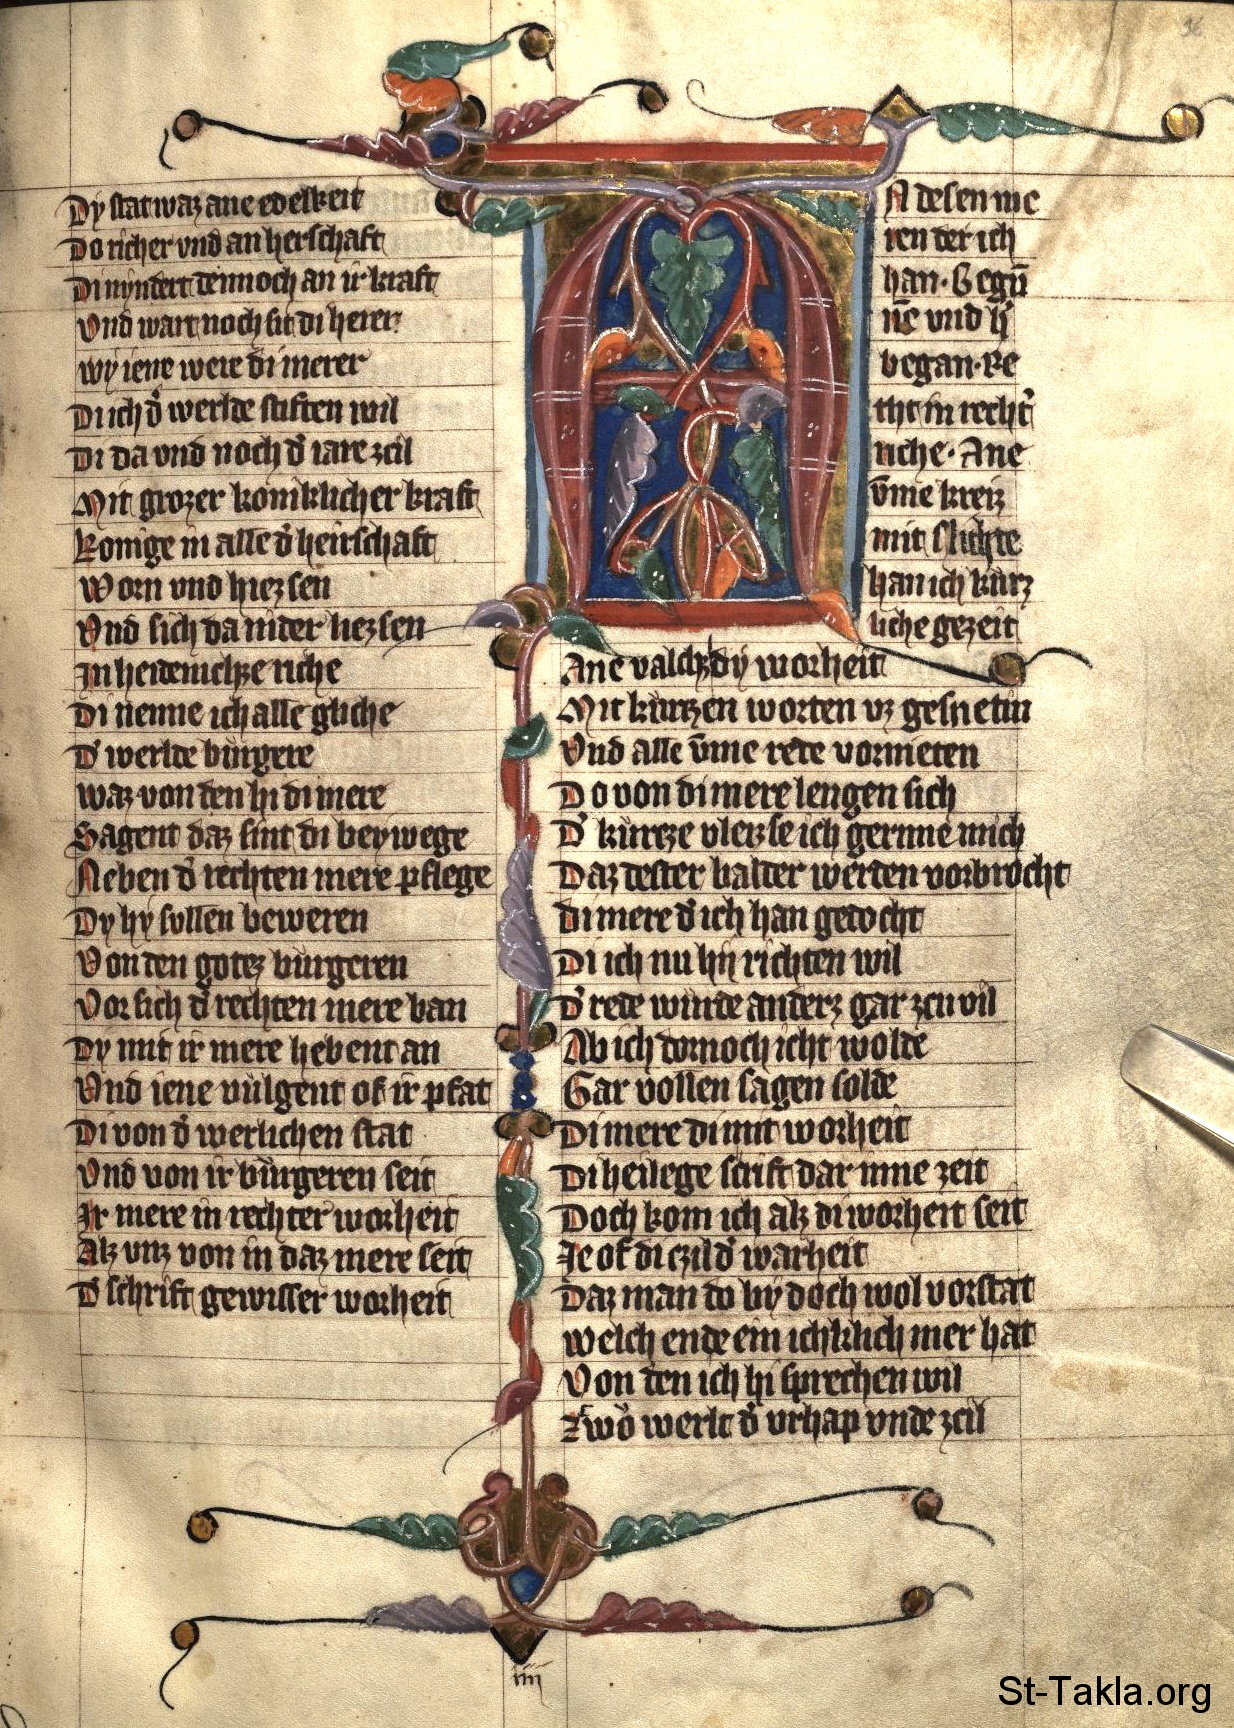 96
Dy stat waz ane edelkeit
Do richer vnd an herschaft
Di nyndert dennoch an ir kraft
Vnd wart noch sit di herer
wy iene were di merer
Di ich d̉ werlde stiften wil
Di da vnd noch d̉ iare zcil
Mit grozer koniklicher kraft
Konige in alle d̉ heirschaft
Worn vnd hiezsen
Vnd sich da nider liezsen
In heidenischze riche
Di nenne ich alle gliche
D̉ werlde burgere
waz von den hi di mere
Sagent daz sint di beywege
Neben d̉ rechten mere pflege
Dy hy sullen beweren
Von den gotez burgeren
Vor sich d̉ rechten mere ban
Dy mit ir mere hebent an
Vnd iene vulgent of ir pfat
Di von d̉ werlichen stat
Vnd von ir burgeren seit
Ir mere in rechter worheit
Alz vnz von in daz mere seit
D̉ schrift gewisser worheit
A
N desen me
ren der ich
han. Begū
ne vnd
began. Re
tht in recht̉
riche. Ane
v̄me kreiz
mit slichte
han ich kurz
liche gezeit
Ane valsch dy worheit
Mit kurzen worten vz gesnetin
Vnd alle v̄me rete vormeten
Do von di mere lengen sich
D̉ kurcze vleiz se ich gerinne mich
Daz dester balder werden vorbrocht
di mere d̉ ich han gedocht
Di ich nu hy richten wil
D̉ rede wurde anderz gar zcu vil
Ab ich dornoch icht wolde
Gar vollen sagen solde
Di mere di mit worheit
Di heilege scrift dar inne zeit
Doch kom ich alz di worheit seit
Je of di czil d̉ warheit
Daz man do by doch wol vorstat
welch ende ein ichklich mer hat
Von den ich hi sprechen wil
Zwo werlt d̉ vrhap vnde zcil
iiii
St-Takla.org